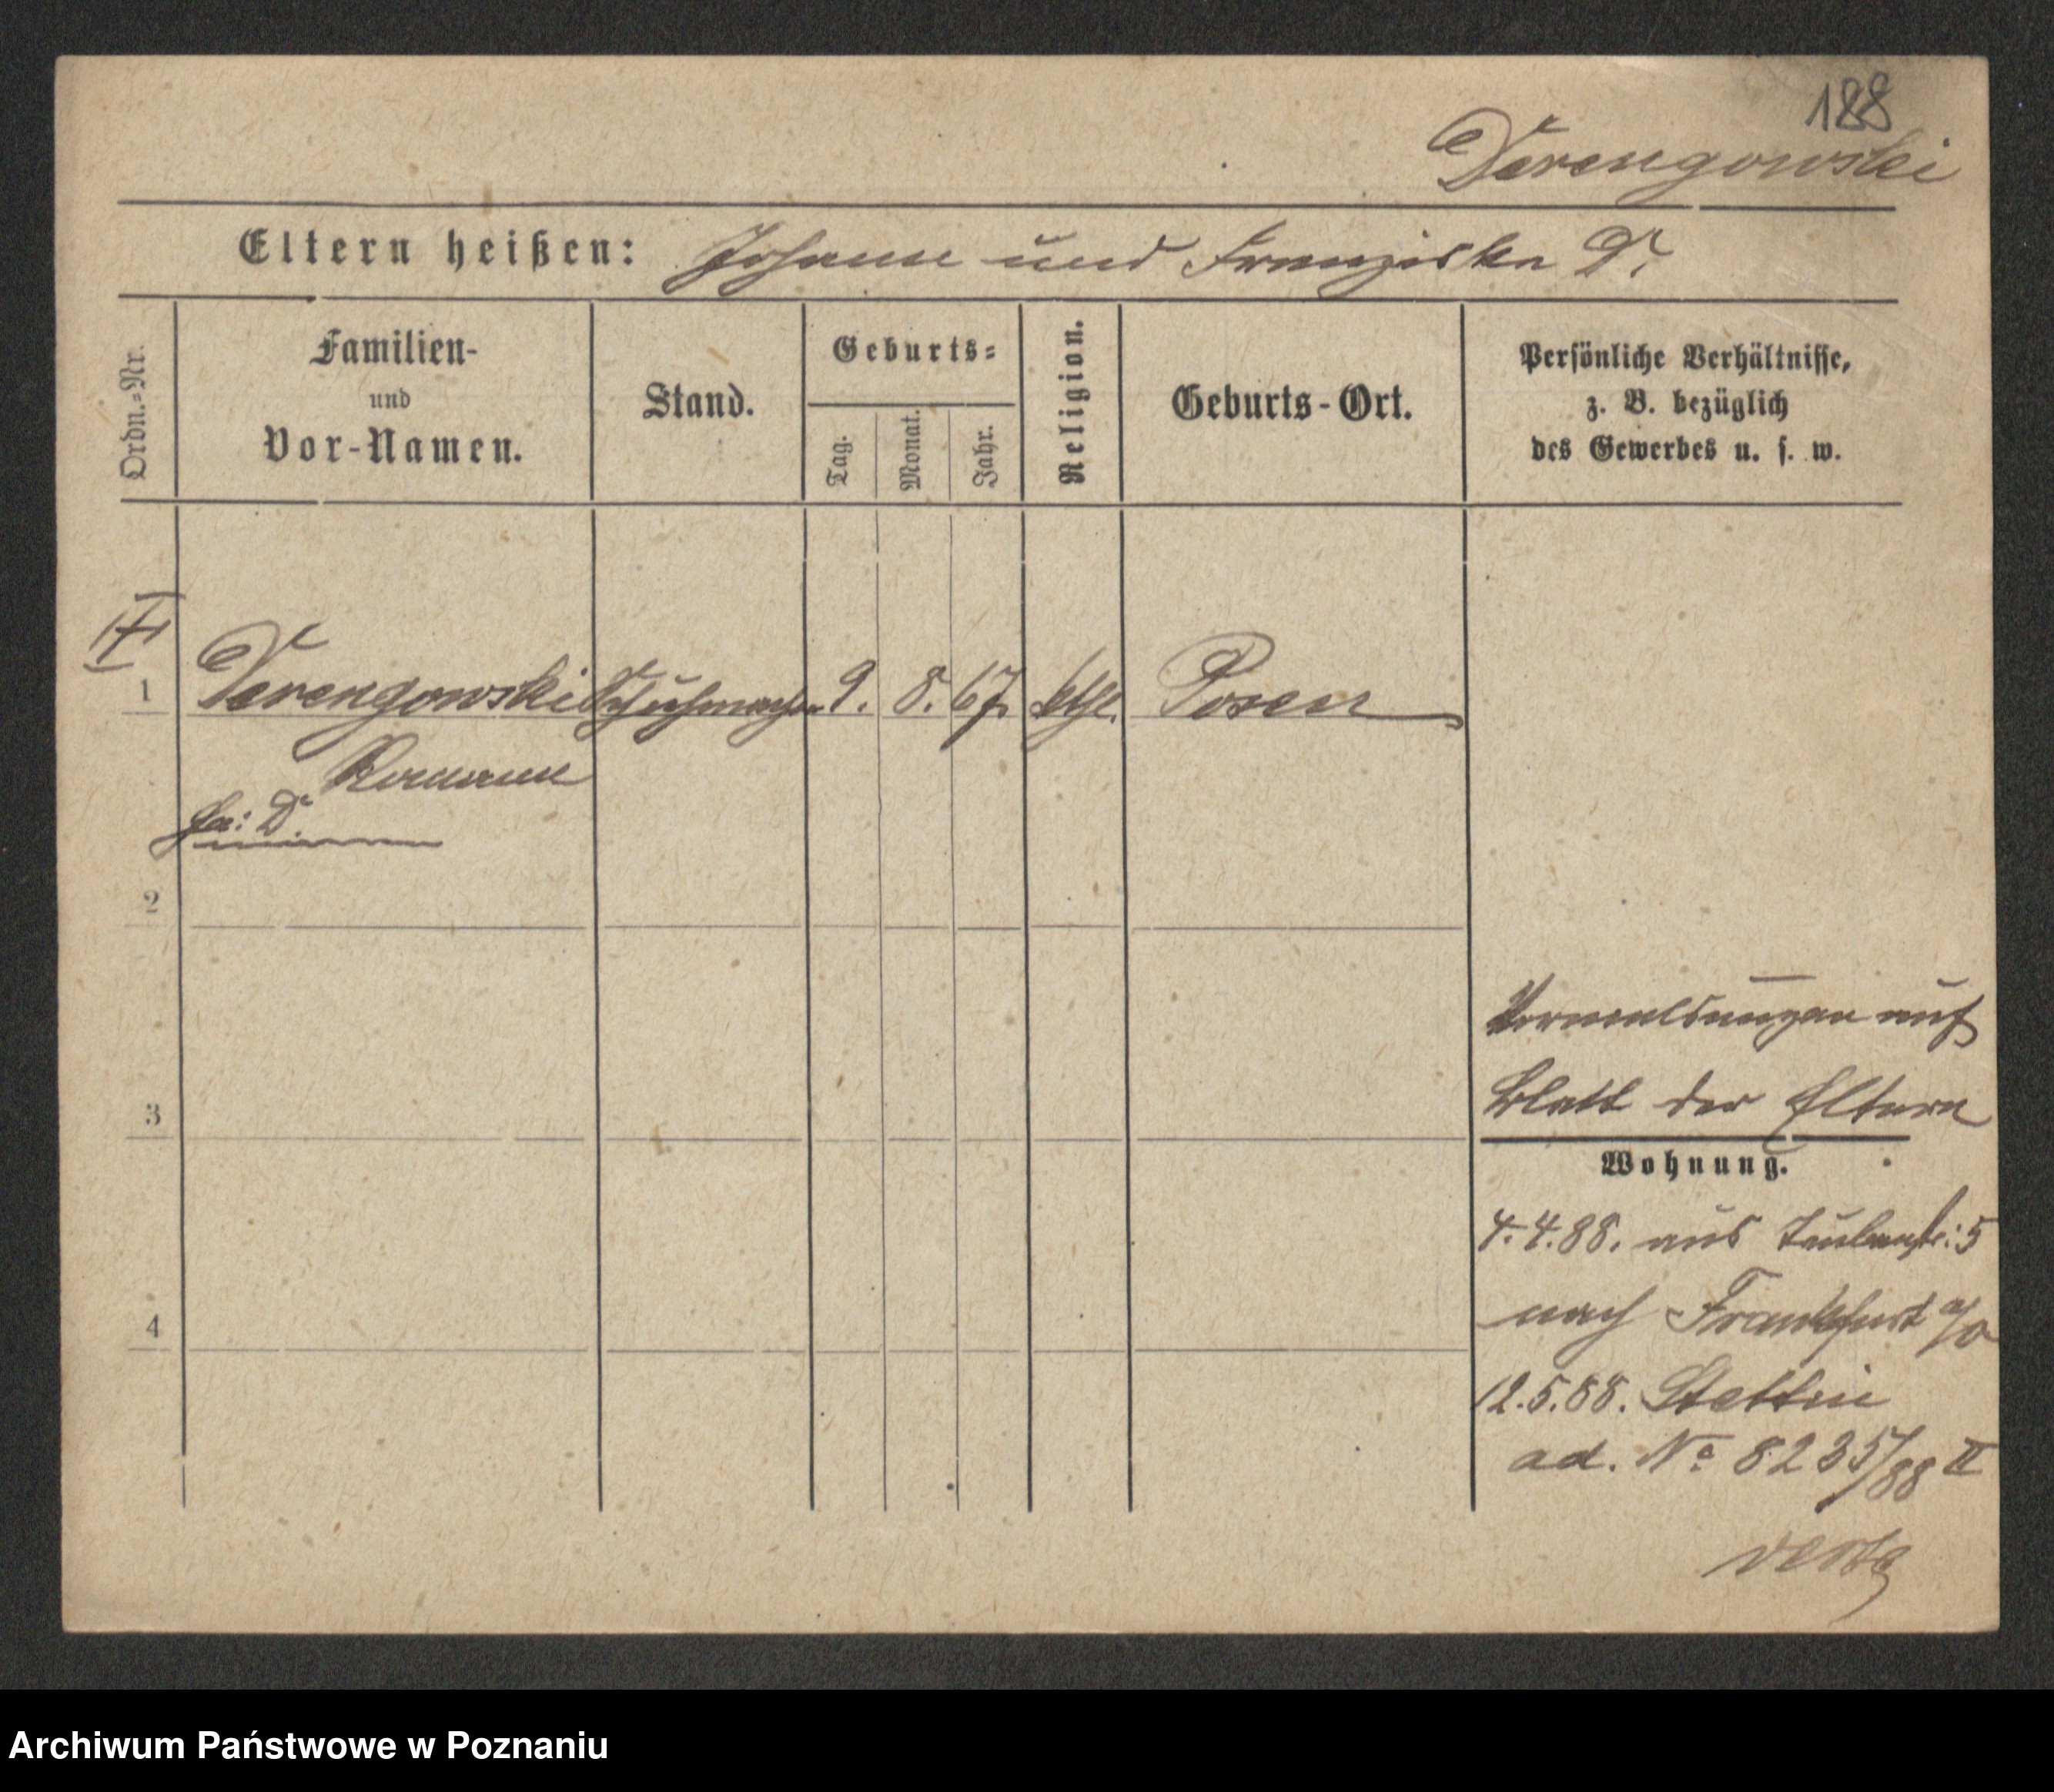 188
Derengowski
Eltern heißen: Johann und Franziska D.
Ordn.-Nr.
Familien-
und
Vor-Namen.
Stand.
Geburts-
Tag.
Monat.
Jahr.
Religion.
Geburts-Ort.
Persönliche Verhältnisse,
z. B. bezüglich
des Gewerbes u. s. w.
1 Derengowski Schuhmacher 9. 8. 67. kthl. Posen
Romann
D.
2
3
4
Vermeldungen auf
Blatt der Eltern
Wohnung.
4.4.88. aus Taubenstr: 5
nach Frankfurt a/O
12.5.88. Stettin
ad. No 8235/88 II